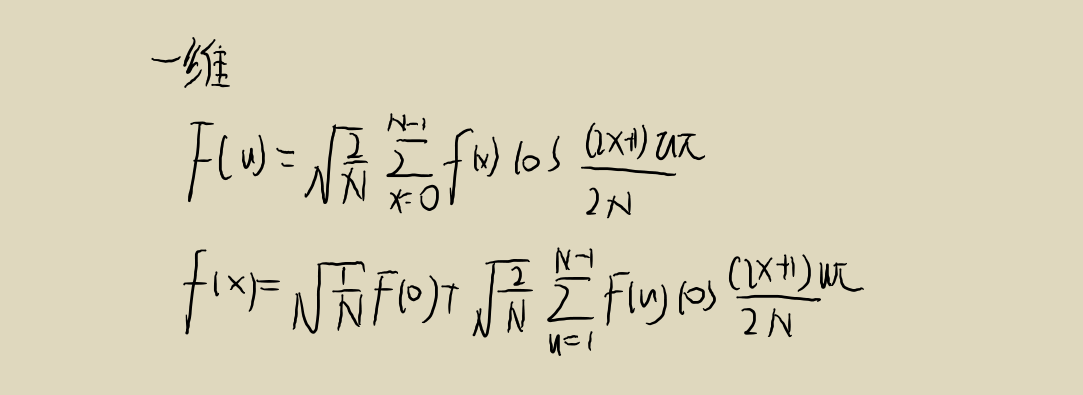 一维
F(u) = √(2/N) ∑_{x=0}^{N-1} f(x) cos (2x+1)uπ / 2N
f(x) = √(1/N) F(0) + √(2/N) ∑_{u=1}^{N-1} F(u) cos (2x+1)uπ / 2N